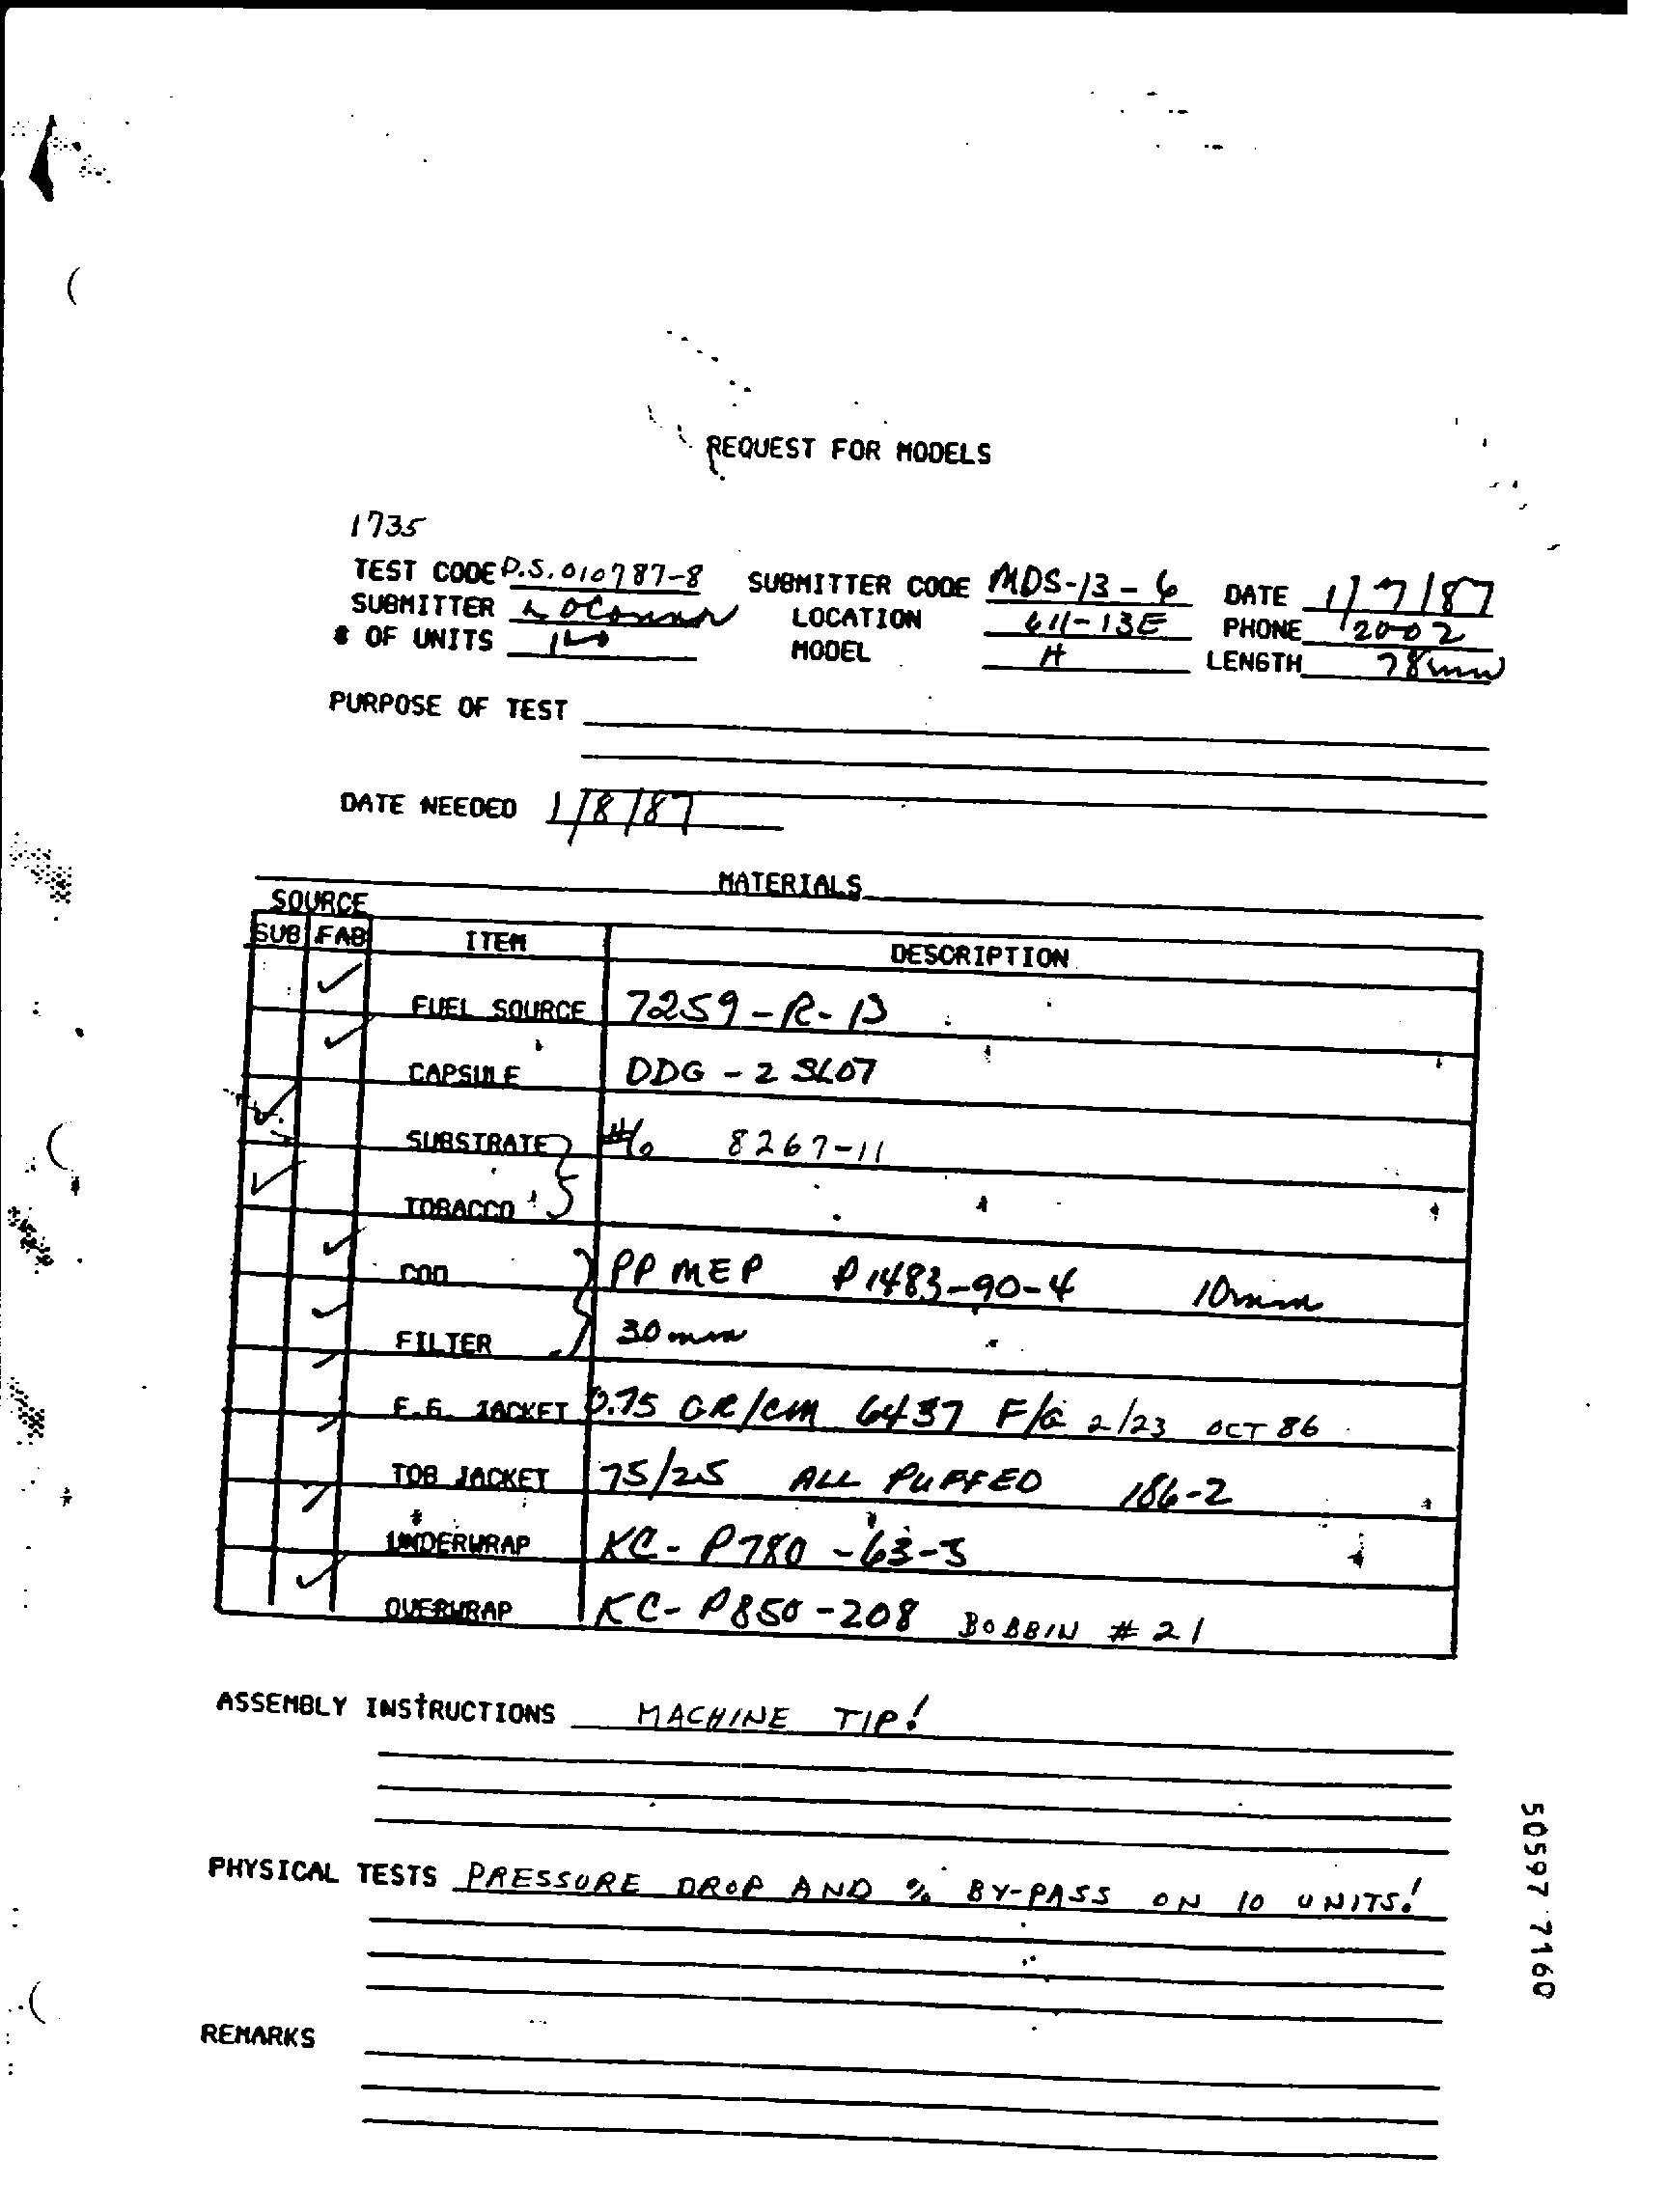 REQUEST FOR MODELS
1735
TEST CODE P.S. 010787-8 SUBMITTER CODE MDS-13-6 DATE 1/7/87
SUBMITTER L OConnor LOCATION 611-13E PHONE 2002
# OF UNITS MODEL H LENGTH 78mm
PURPOSE OF TEST
DATE NEEDED 1/8/87
MATERIALS
SOURCE
SUB FAB ITEM DESCRIPTION
FUEL SOURCE 7259-R-13
CAPSULE DDG - 2 SLOT
SUBSTRATE 8267-11
TOBACCO
COD PP MEP P1483-90-4 10mm
FILTER 30mm
F.G. JACKET 0.75 GR/CM 6437 F/G 2/23 OCT 86
TOB JACKET 75/25 ALL PUFFED 186-2
UNDERWRAP KC-P780-63-5
OVERWRAP KC-P850-208 BOBBIN # 21
ASSEMBLY INSTRUCTIONS MACHINE TIP!
PHYSICAL TESTS PRESSURE DROP AND % BY-PASS ON 10 UNITS!
REMARKS
50597 7160